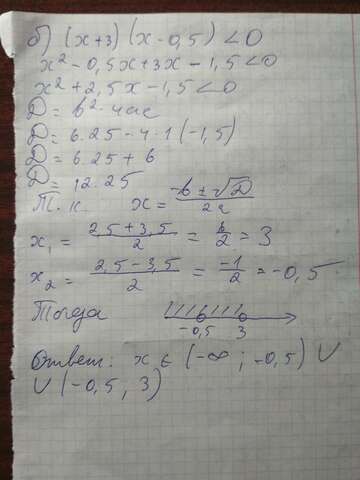 б) (x+3)(x-0,5)<0
x²-0,5x+3x-1,5<0
x²+2,5x-1,5<0
D=b²-4ac
D=6.25-4·1(-1,5)
D=6.25+6
D=12.25
Т.к. x=-b±√D/2a
x₁=2,5+3,5/2=6/2=3
x₂=2,5-3,5/2=-1/2=-0,5
Тогда -0,5 3
Ответ: x ∈ (-∞; -0,5) ∪
∪ (-0,5, 3)